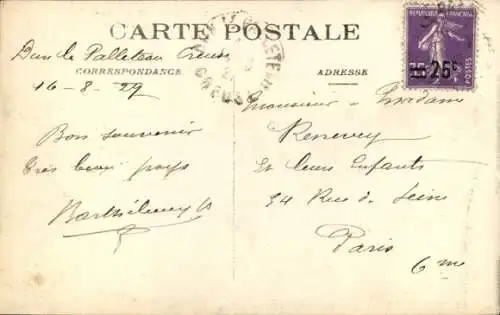 CARTE POSTALE
Dun le Palleteau Creuse
CORRESPONDANCE
16-8-29
Bon souvenir
très beau pays
Barthélemy
ADRESSE
Monsieur - Madame
Renevey
et leurs Enfants
34 Rue de Seine
Paris
6me
REPUBLIQUE FRANÇAISE
25c
POSTES
CREUSE